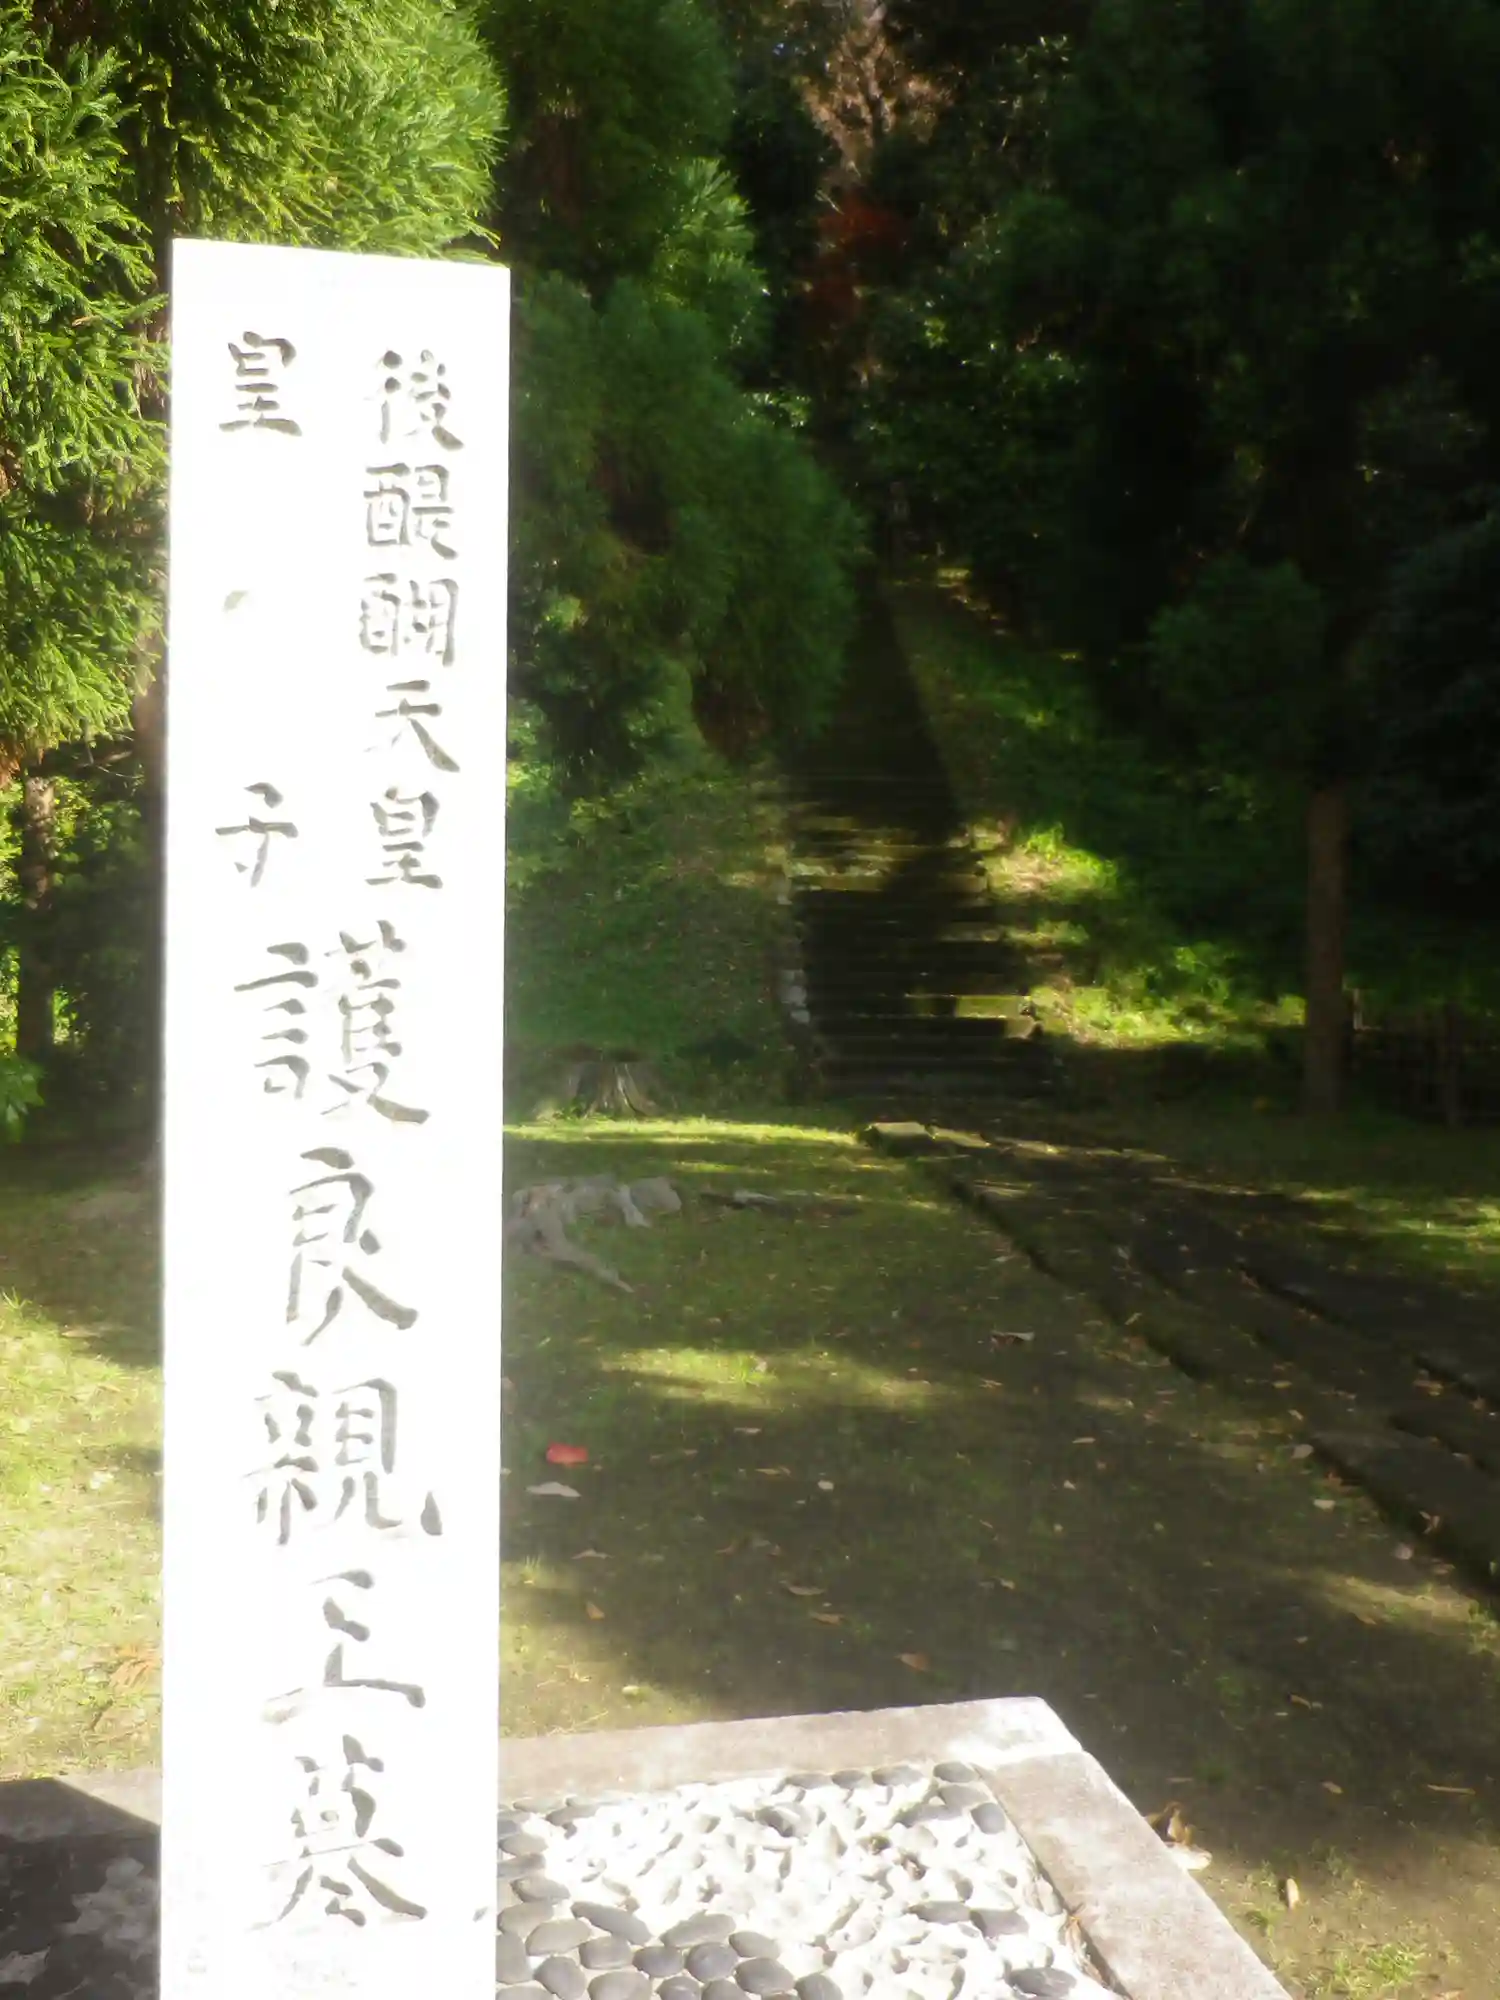 後醍醐天皇
皇子
護良親王墓